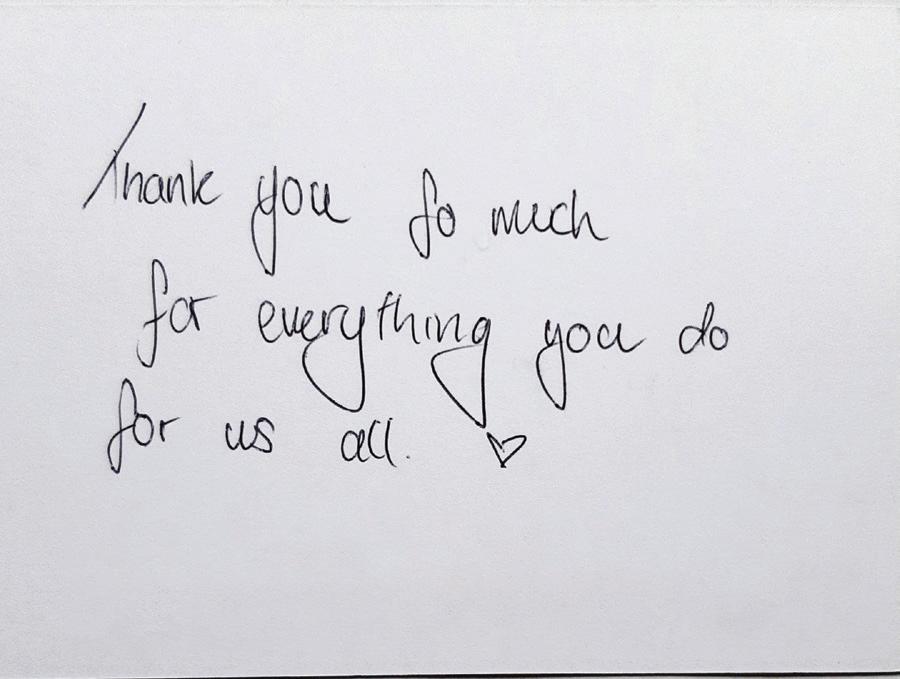 Thank you so much
for everything you do
for us all. ♡